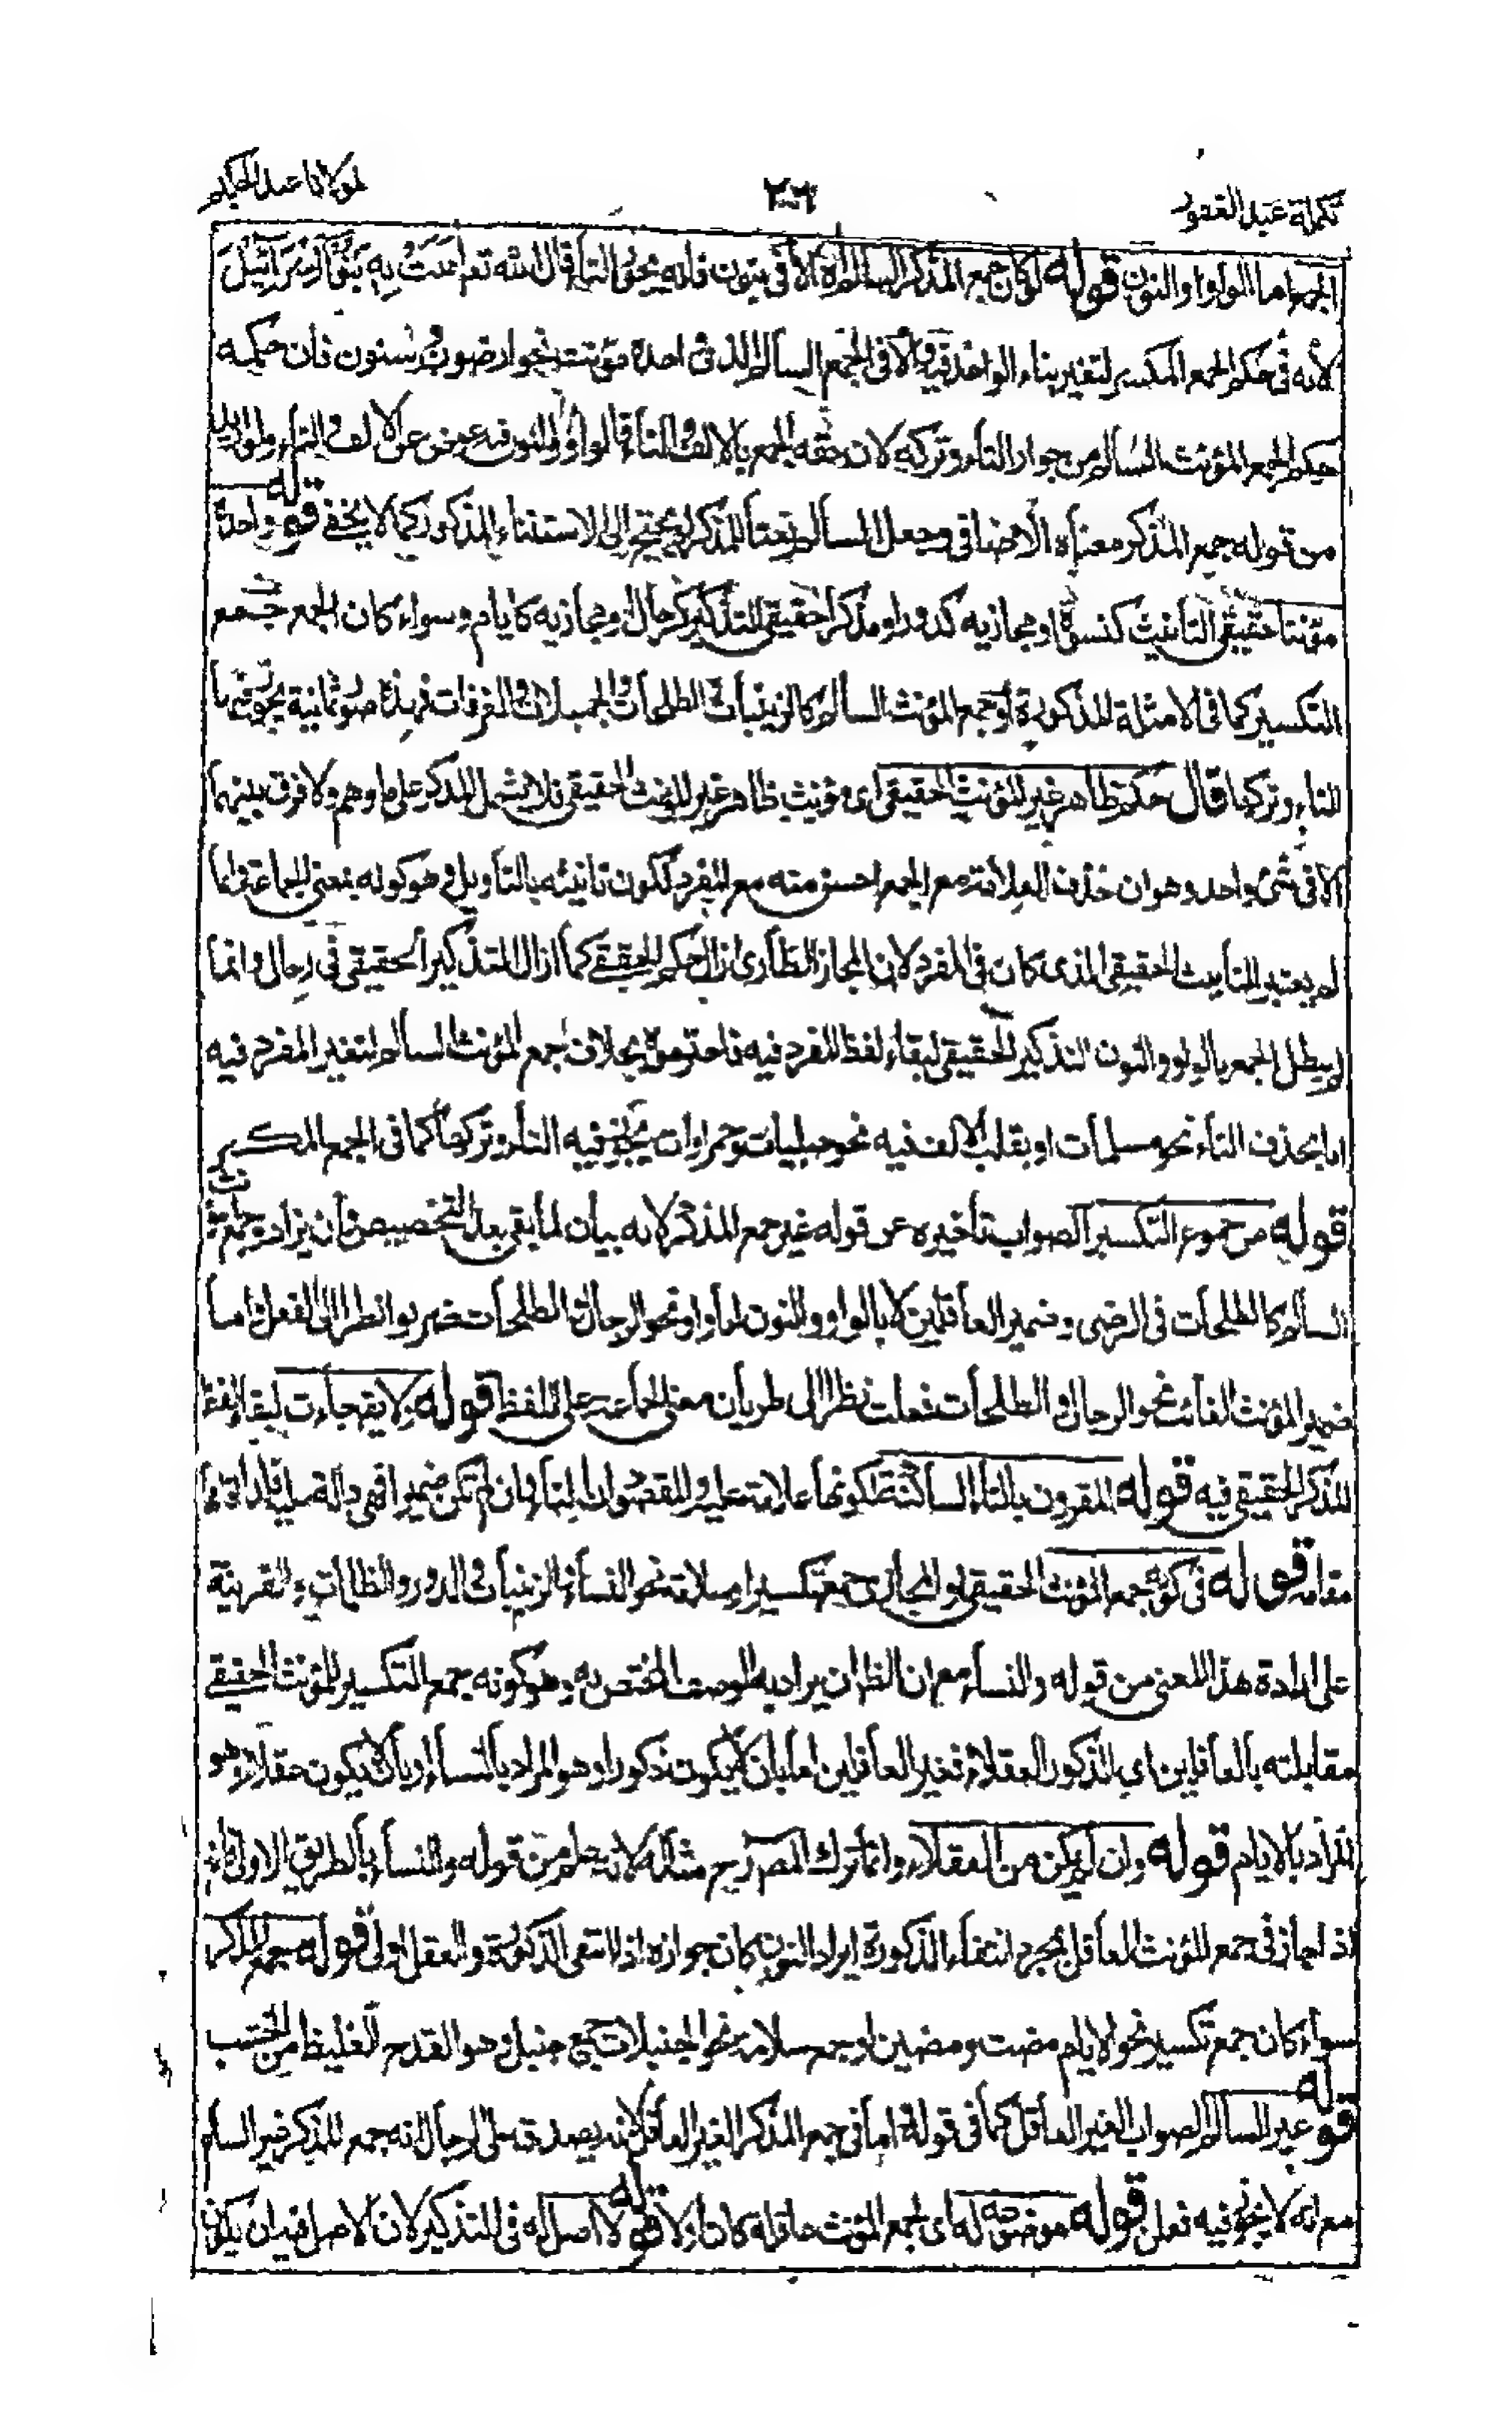 تكملة عبد الغفور
٢٠٦
لمولانا عبد الحكيم
الجمع اما الواو او النون قوله لو كان جمع المذكر السالم الا فى بنون فانه يجوز التاء قال الله تعم امنت به بنوا اسرائيل
لأنه فى حكم الجمع المكسر لتغير بناء الواحد فيه والا فى الجمع السالم الذى واحده مؤنث نحو ارضون وسنون فان حكمه
حكم الجمع المؤنث السالم من جواز التاء وتركه لان حقه الجمع بالالف والتاء فالواو والنون فيه عوض عن الالف والتاء ولو اريد
من قوله جمع المذكر معناه الاضافى وجعل السالم نعتا للمذكر لم يحتج الى الاستثناء المذكور كما لا يخفى قوله واحده
مؤنثا حقيقى التأنيث كنسوة او مجازيه كدور او مذكرا حقيقى التذكير كرجال او مجازيه كايام وسواء كان الجمع جمع
التكسير كما فى الامثلة المذكورة او جمع المؤنث السالم كالزينبات والطلحات والجبيلات والغرفات فهذه صور ثمانية يجوز فيها
التاء وتركها قال حكم ظاهر غير المؤنث الحقيقى اى مؤنث ظاهر غير المؤنث الحقيقى فلا يشمل المذكر على ما وهم ولا فرق بينهما
الا فى شئ واحد وهو ان حذف العلامة مع الجمع احسن منه مع المفرد لكون تانيثه بالتأويل وهو كونه بمعنى الجماعة وانما
لم يعتبر التأنيث الحقيقى الذى كان فى المفرد لان المجاز الطارى ازال حكم الحقيقى كما ازال التذكير الحقيقى فى رجال وانما
لم يبطل الجمع بالواو والنون التذكير الحقيقى لبقاء لفظ المفرد فيه فاحترموه بخلاف جمع المؤنث السالم لتغير المفرد فيه
اما بحذف التاء نحو مسلمات او بقلب الالف فيه نحو حبليات وحمراوات فيجوز فيه التاء وتركها كما فى الجمع المكسر
قوله من جموع التكسير الصواب تأخيره عن قوله غير جمع المذكر لانه بيان لما بقى بعد التخصيص وأن يزاد وجمع المؤنث
السالم كالطلحات فى الرضى وضمير العاقلين لا بالواو والنون اما واو نحو الرجال والطلحات ضربوا نظرا الى العقل واما
ضمير المؤنث الغائب نحو الرجال والطلحات فعلت نظرا الى طريان معنى الجماعة على اللفظ قوله ولا يق جاءت لبقاء لفظ
المذكر الحقيقى فيه قوله المقرون بالتاء الساكنة لكونها علامة عليه والمقصود ان التاء وان لم تكن ضميرا فهى دالة عليه فلذا اقامها
مقامه قوله فى كونه جمع المؤنث الحقيقى او المجازى جمع تكسير او سلامة نحو النساء والزينبات والدور والظلمات والقرينة
على ارادة هذا المعنى من قوله والنساء مع ان الظ ان يراد به الوصف المختص به وهو كونه جمع التكسير للمؤنث الحقيقى
مقابلته بالعاقلين اى الذكور العقلاء فغير العاقلين اما بان لا يكون ذكورا وهو المراد بالنساء او بان لا يكون عقلاء وهو
المراد بالايام قوله وان لم يكن من العقلاء وانما ترك المص رح مثاله لانه يعلم من قوله والنساء بالطريق الاولى فانه
اذا جاز فى جمع المؤنث العاقل بمجرد انتفاء الذكورة ايراد النون كان جوازه اذا انتفى الذكورة والعقل اولى قوله جمع المذكر
سواء كان جمع تكسير نحو الايام مضت ومضين او جمع سلامة نحو الجنبلات جمع جنبل وهو القدح الغليظ من الخشب
قوله غير السالم الصواب الغير العاقل كما فى قوله اما فى جمع المذكر الغير العاقل لانه يصدق على الرجال انه جمع المذكر غير السالم
مع انه لا يجوز فيه فعلن قوله موضوعه له اى لجمع المؤنث عاقلا كان او لا قوله لا اصل له فى التذكير لان الاصل فيه ان يكون